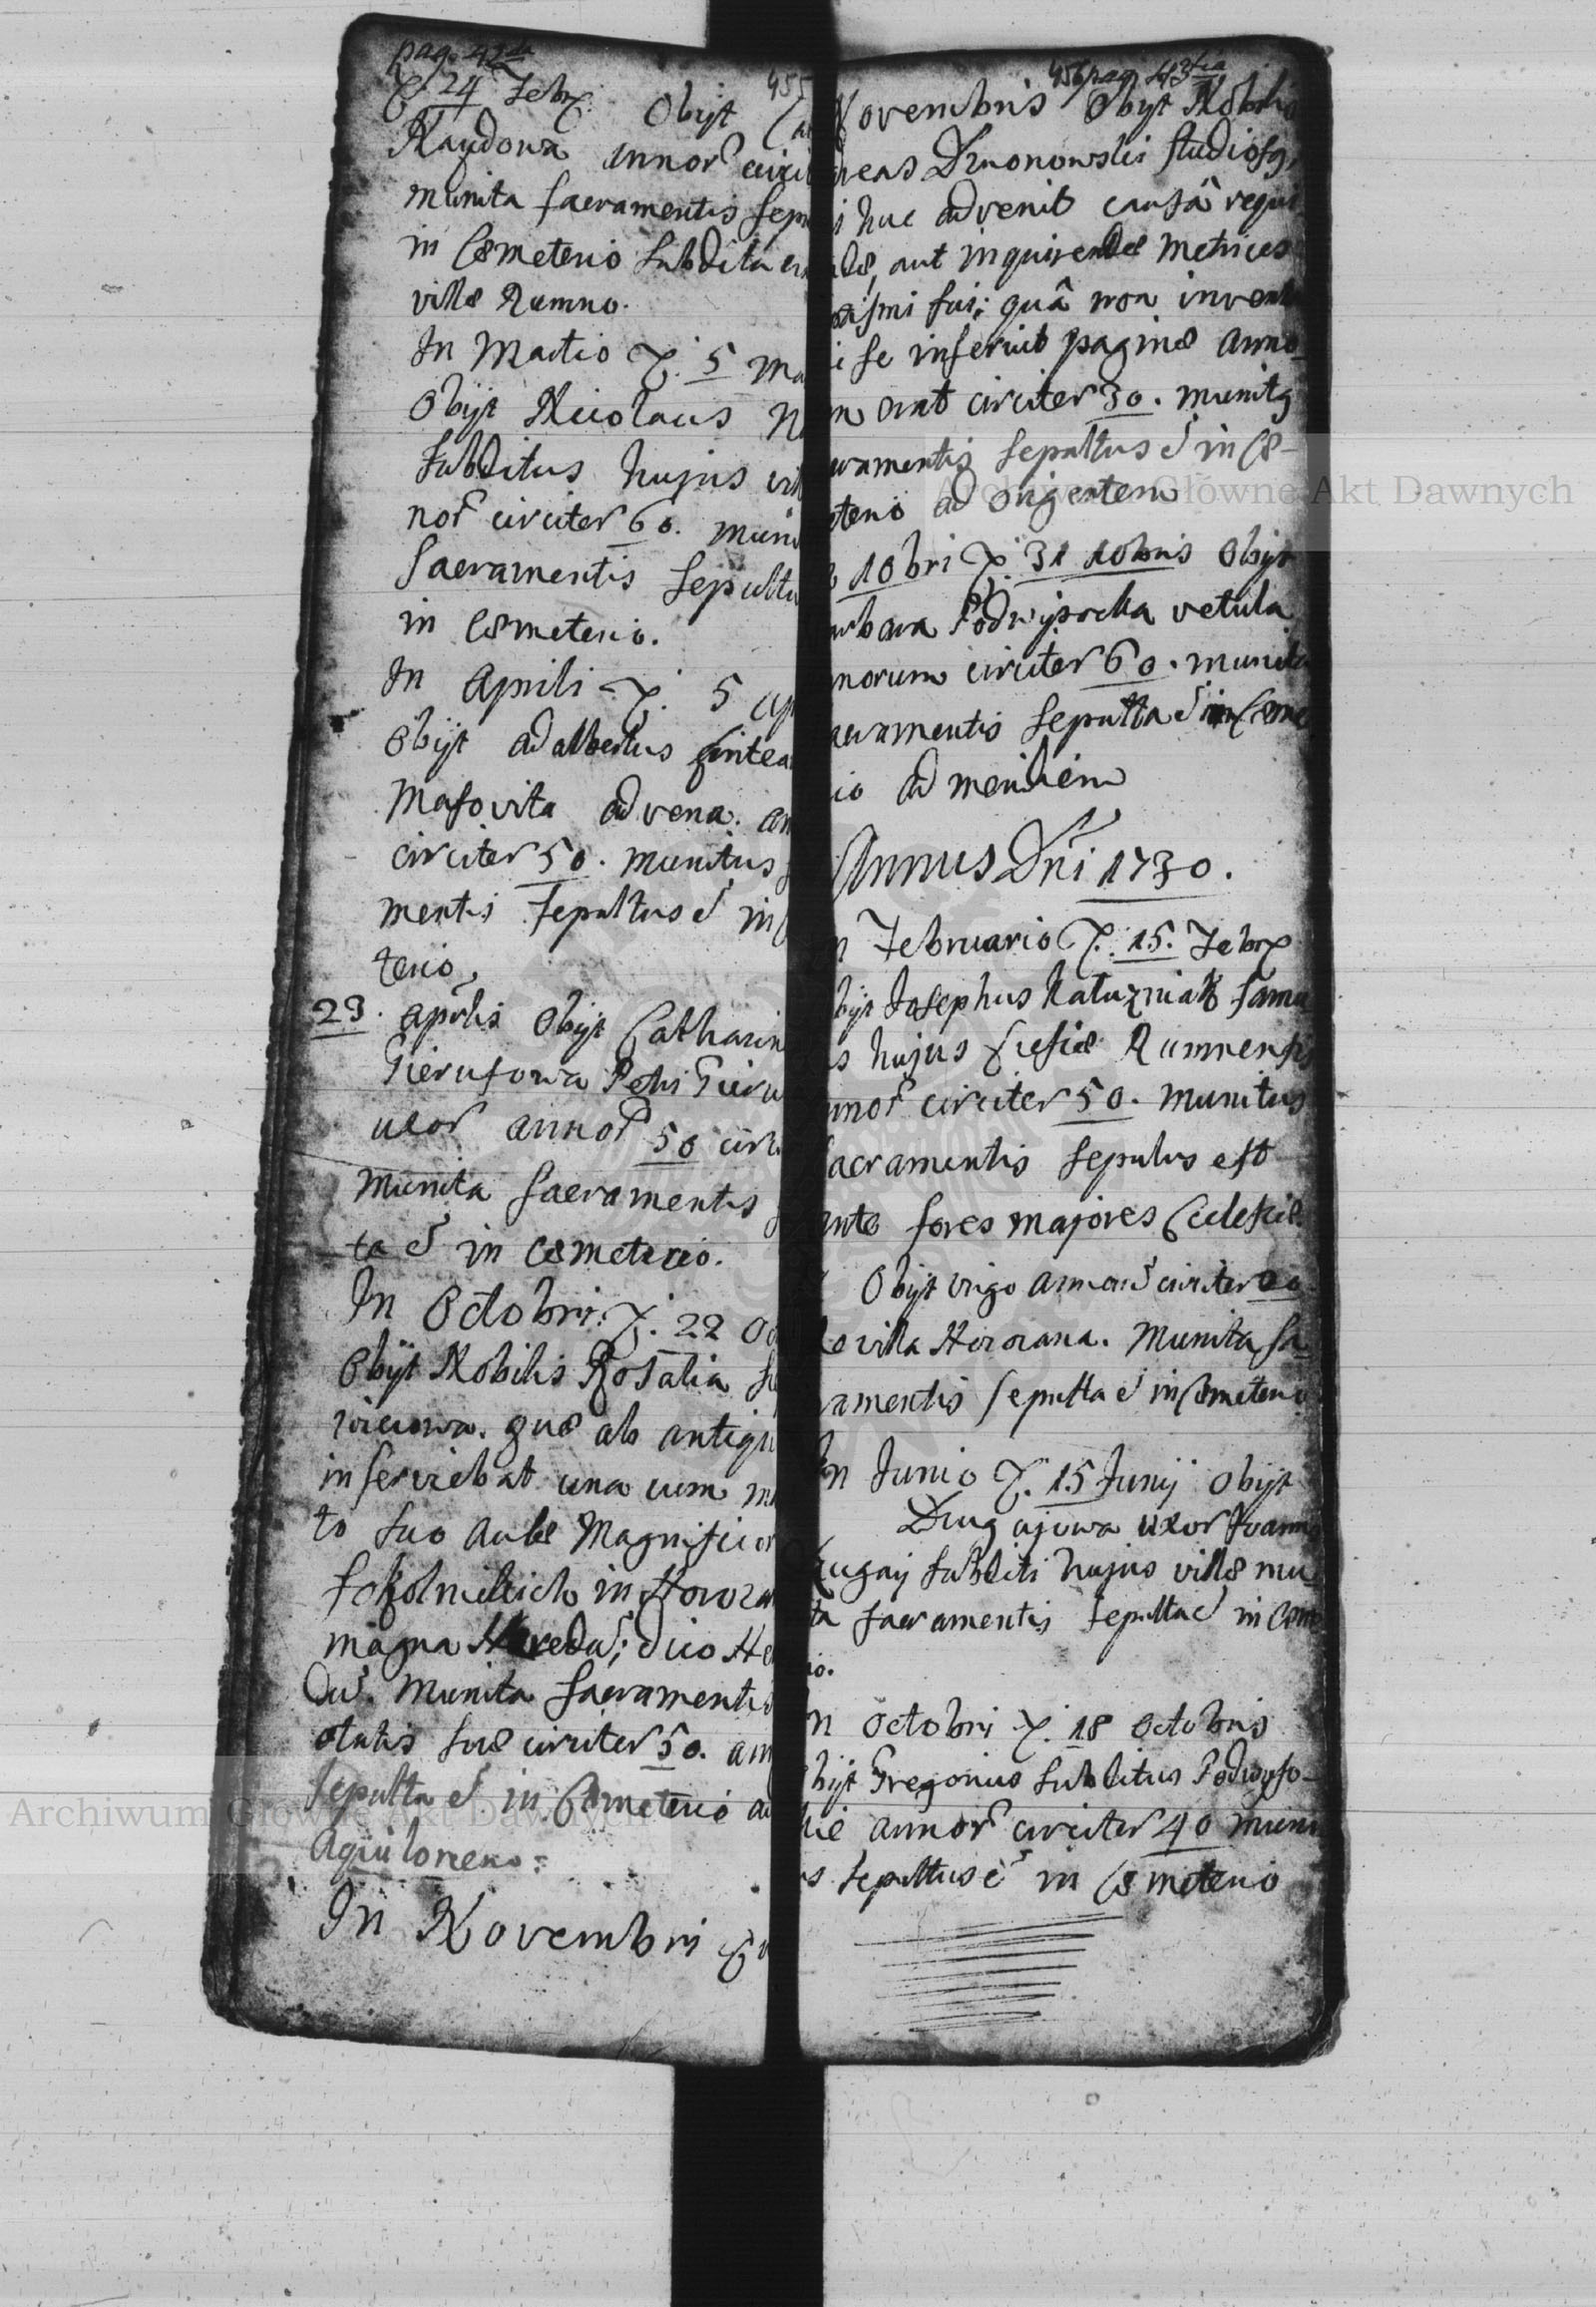 pag. 42da
24 Febr. Obijt
455
Kaydowa annor
munita sacramentis sep
in Cœmeterio subdita
villæ Rumno.
In Martio D. 5 Ma
Obijt Nicolaus N
subditus hujus vil
nor circiter 60. muni
Sacramentis sepultu
in Cœmeterio.
In Aprili D. 5 Ap
Obijt Adalbertus
Masovita advena. an
circiter 50. munitus
mentis sepultus ẽ in
terio,
23. Aprilis Obijt Catharin
Gierusowa Petri Gieru
uxor annor 50 circ
Munita sacramentis
ta ẽ in Cœmeterio.
In Octobri. D. 22 Oc
Obijt Nobilis Rosalia
quæ ab antiqu
inserviebat una cum m
to suo aulæ Magnificor
in Horoza
magna Hæredũ; dico Hæ
dũ. Munita sacramenti
ætatis suæ circiter 50. ann
Sepulta ẽ in Cœmeterio a
Aquilonem:
In Novembri
456 pag. 43tia
Novembris Obijt Nobilis
reas Dzwonowski studiosq,
i huc advenit causâ requi
dæ, aut inquirendæ Metrices
tismi sui; quâ non invent
i se inseruit paginæ anno
m erat circiter 30. munitq
cramentis sepultus ẽ in Cæ-
eterio ad Orientem
10bri D. 31 10bris Obijt
arbara Podwysocka vetula
norum circiter 60. munita
acramentis sepulta ẽ in Cœme
io ad meridiem
Annus Dñi 1730.
n Februario D. 15. Febr
bijt Josephus Kałuzniak famu
s hujus Ecclesiæ Rumnensis
nnor circiter 50. munitus
sacramentis sepulus est
ante fores majores Ecclesiæ.
Obijt virgo circiter
villa Horozana. Munita sa-
ramentis sepulta ẽ in Cœmeterio
In Junio D. 15 Junij Obijt
Drugajowa uxor Joannis
rugaij subditi hujus villæ mu-
ta sacramentis sepulta ẽ in Cœme
io.
n Octobri D. 18 Octobris
bijt Gregorius subditus Podwyso-
annor circiter 40 muni
s sepultus ẽ in Cœmeterio
Archiwum Główne Akt Dawnych
Archiwum Główne Akt Dawnych